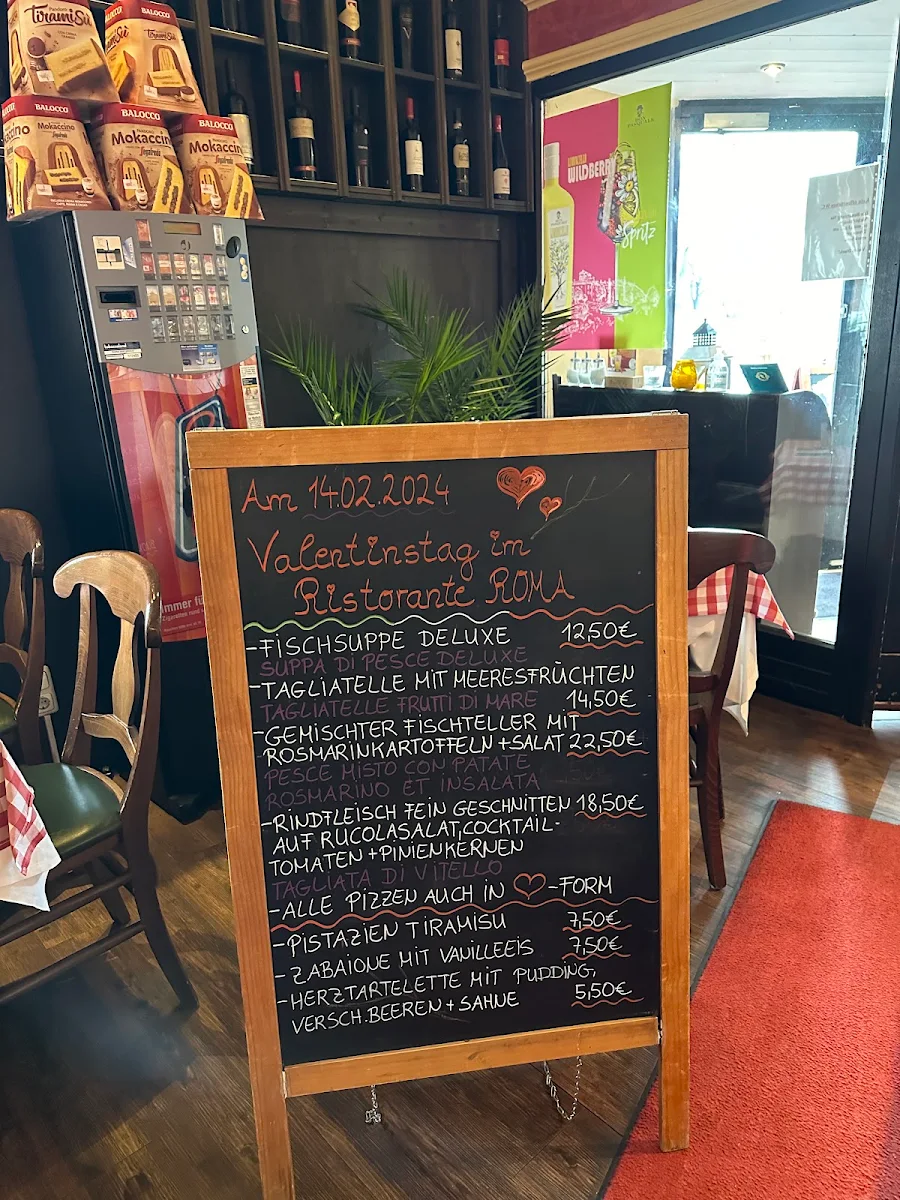 TiramiSù
BALOCCO
TiramiSù
BALOCCO
Mokaccino
BALOCCO
Mokaccino
WILDBERRY
Spritz
Am 14.02.2024
Valentinstag im
Ristorante ROMA
-FISCHSUPPE DELUXE 12,50€
SUPPA DI PESCE DELUXE
-TAGLIATELLE MIT MEERESFRÜCHTEN
TAGLIATELLE FRUTTI DI MARE 14,50€
-GEMISCHTER FISCHTELLER MIT
ROSMARINKARTOFFELN + SALAT 22,50€
PESCE MISTO CON PATATE
ROSMARINO ET INSALATA
-RINDFLEISCH FEIN GESCHNITTEN 18,50€
AUF RUCOLASALAT, COCKTAIL-
TOMATEN + PINIENKERNEN
TAGLIATA DI VITELLO
-ALLE PIZZEN AUCH IN -FORM
-PISTAZIEN TIRAMISU 7,50€
-ZABAIONE MIT VANILLEEIS 7,50€
-HERZTARTELETTE MIT PUDDING,
VERSCH. BEEREN + SAHNE 5,50€